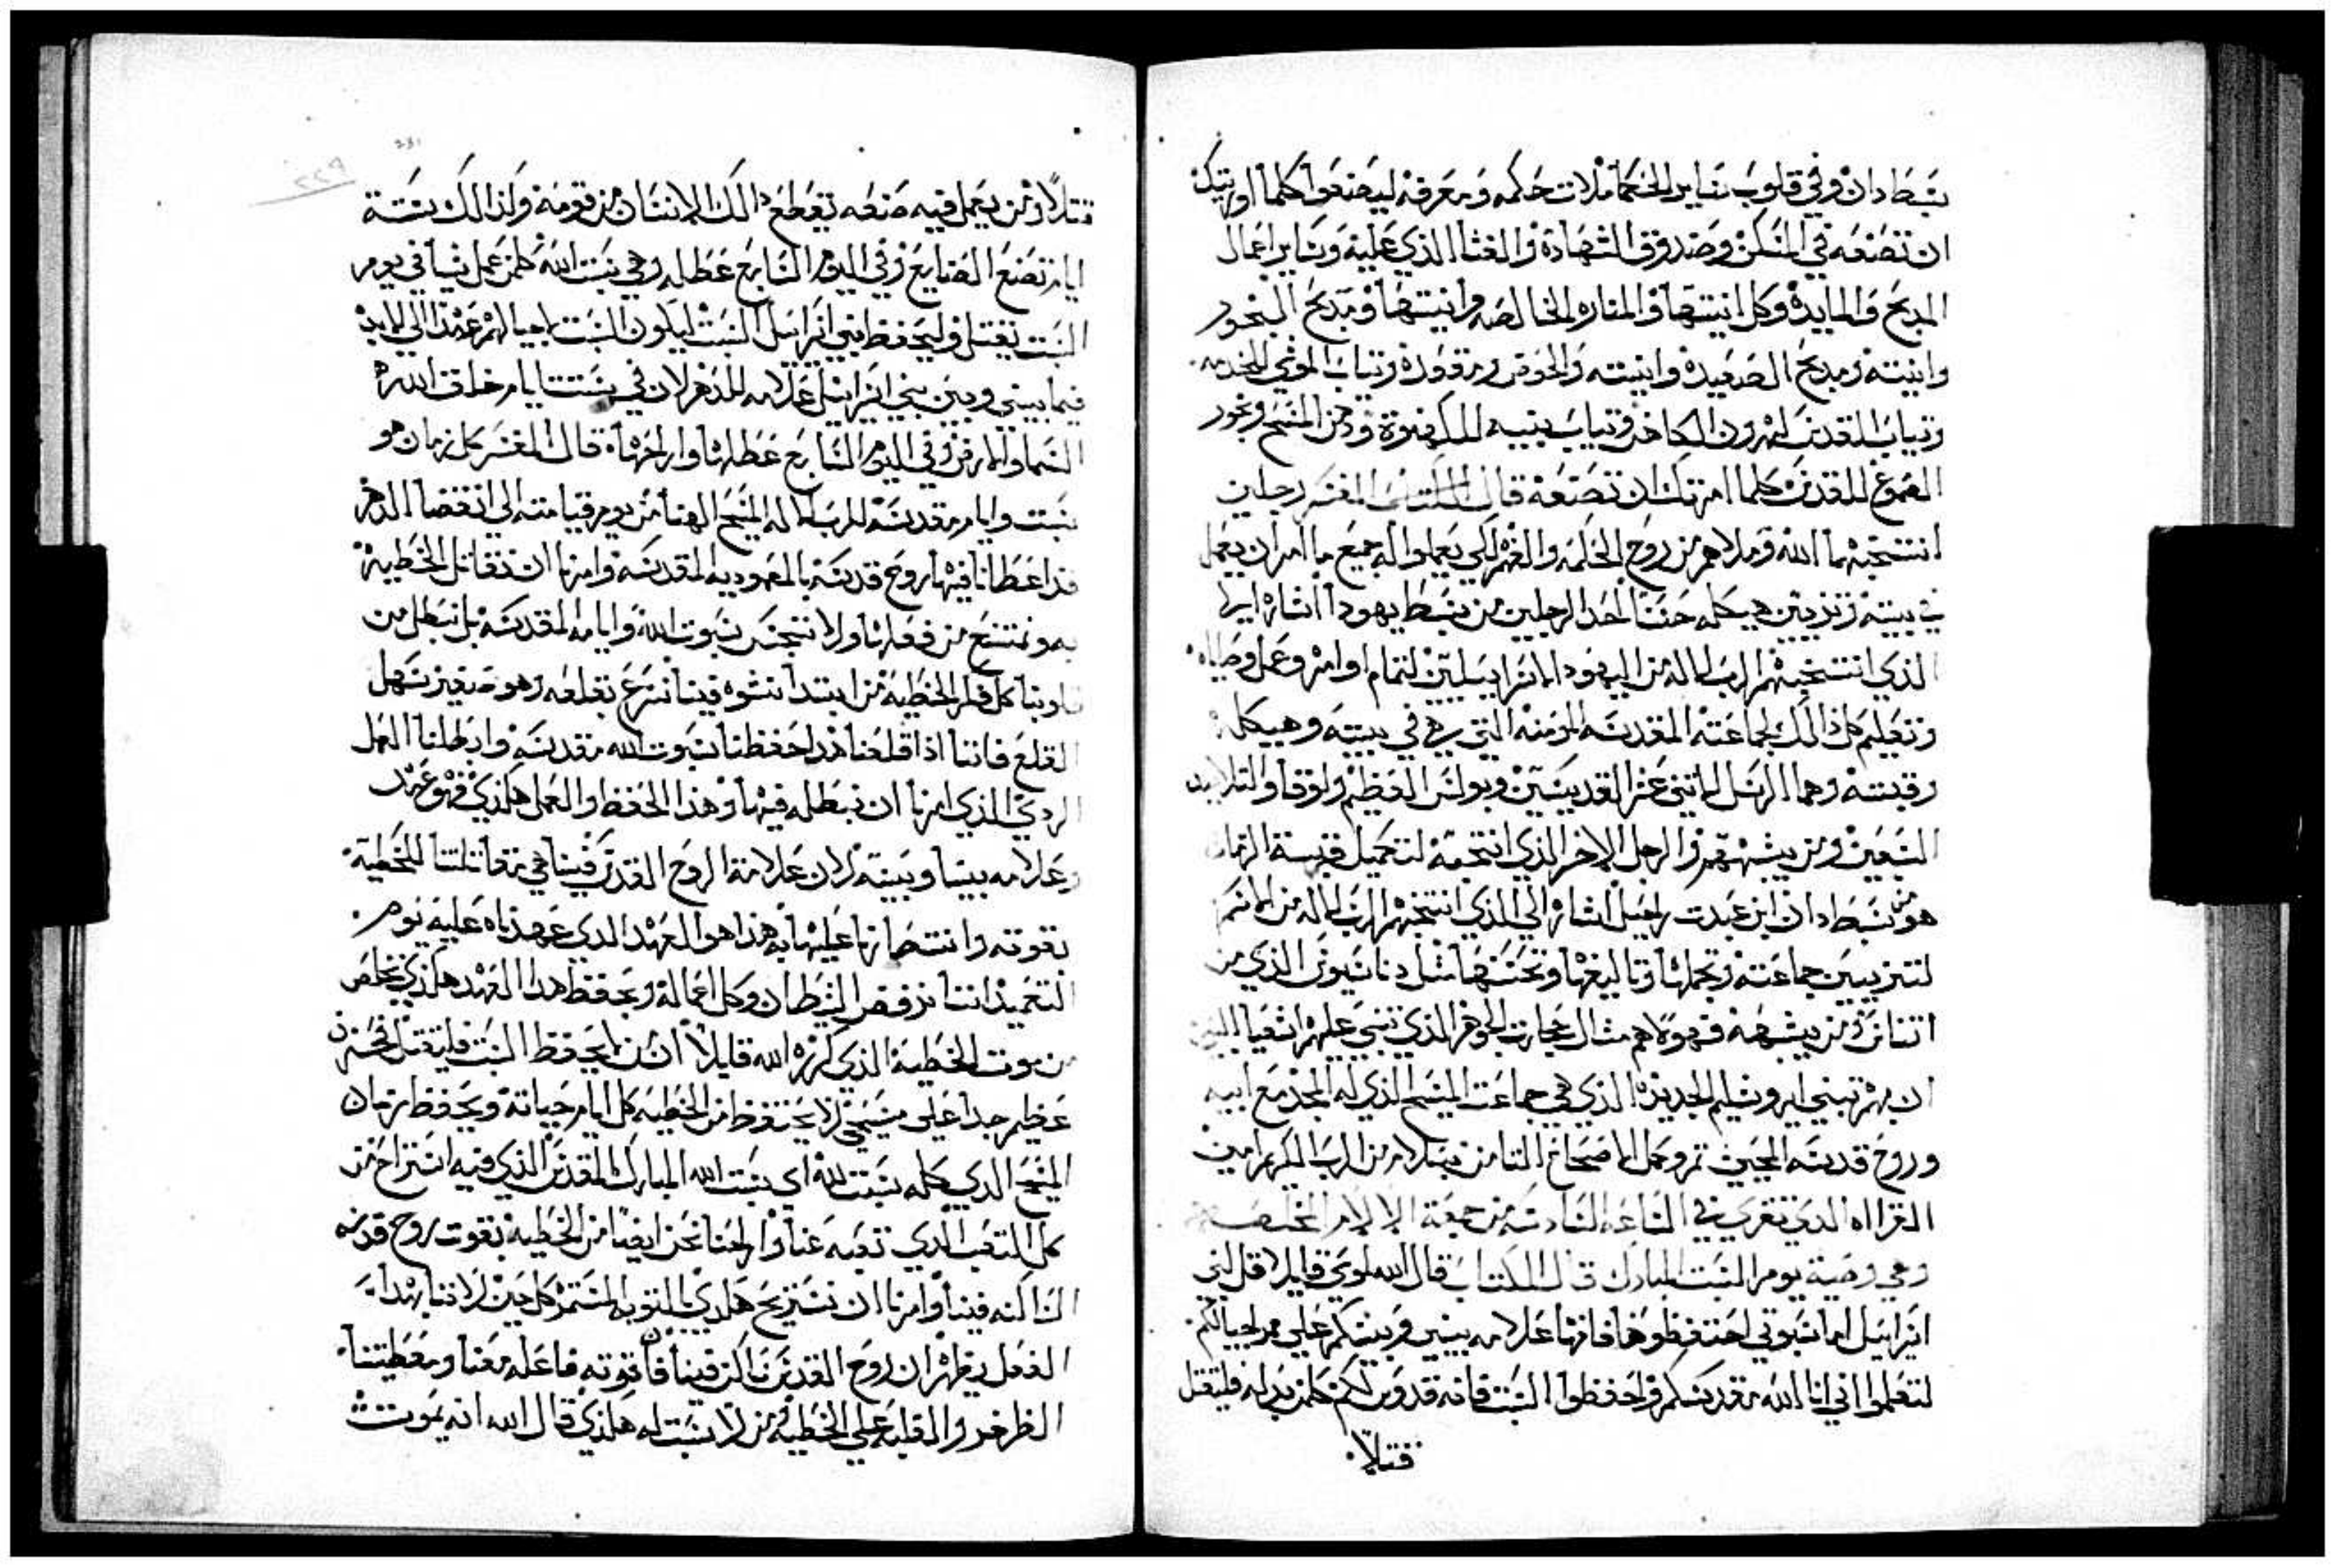 سبط دان وفي قلوب ساير الحكما ملات حكمه ومعرفه ليصنعوا كلما اوريتك
ان تصنعه في المسكن وصندوق الشهادة والغشا الذي عليه وساير اعمال
المدبح والمايدة وكل انيتها والمناره الخالصه وانيتها ومدبح البخور
وانيته ومدبح الصعيدة وانيته والحوض ومقعده وتياب الموشي للخدمه
وتياب القدس لهرون الكاهن وتياب بنيه للكهنوة ودهن المسح وبخور
الصموغ للقدس كلما امرتك ان تصنعه قال المفسر رجلين
انتخبهما الله وملاهم من روح الحكمه والفهم لكي يعملوا له جميع ما امر ان يعمل
في بيته وتزيين هيكله حسنا احد الرجلين من سبط يهودا اشاره الي
الذي انتخبهم الرب الاله من اليهود الاسراييليين لتمام اوامره وعمل وصاياه
وتعليم كل ذالك لجماعته المقدسه المومنه التي هي في بيته وهيكله
وقبته وهما الرسل الاتني عشر القديسين وبولس العظيم ولوقا والتلاميد
السبعين ومن يشبههم والرجل الاخر الذي انتخبه لتكميل قبة الزمان
هو من سبط دان ابن عبدت راحيل اشاره الي الذي انتخبهم الرب الاله من الامم
لتزيين جماعته وتجملها وتاليفها وتحسنها مثل ديانسيوس الذي من
اتناس ومن يشبهه فهولاهم مثال حجارت الجوهر الذي تنبي عليهم اشعيا النبي
ان بهم تبني ايروشليم الجديدة الذي هي جماعت المسيح الذي له المجد مع ابيه
وروح قدسه المحيي تم وكمل الاصحاح التامن بسلام من الرب الكريم امين
القراه الذي تقري في الساعه السادسه من جمعة الالام
وهي وصية يوم السبت المبارك قال الكتاب قال الله لموسي قايلا قل لبني
اسراييل اما سبوتي احتفظوها فانها علامه بيني وبينكم علي مر اجيالكم
لتعلموا اني انا الله مقدسكم واحفظوا السبت فانه قدوس لكم كلمن بدله فليقتل
فتلاً
قتلاً ومن يعمل فيه صنعه تقطع دالك الانسان من قومه ولذالك ستة
ايام تصنع الصنايع وفي اليوم السابع عطله وهي سبت الله كلمن عمل شيا في يوم
السبت يقتل وليحفظ بني اسراييل السبت ليكون السبت لاجيالهم عهدا الي الابد
فيما بيني وبين بني اسراييل علامه للدهر لان في ستت ايام خلق الله
السما والارض وفي اليوم السابع عطلها واراحها قال المفسر كل زمان هو
سبت وايام مقدسه للرب الاله المسيح الهنا من يوم قيامته الي انقضا الدهر
قد اعطانا فيها روح قدسه بالمعموديه المقدسه وامرنا ان نقاتل الخطيه
به ونمتنع من فعلها ولا ننجس سبوت الله وايامه المقدسه بل نبطل من
قلوبنا كل فكر الخطيه من ابتدا نشوه فينا نسرع بقلعه وهو صغير سهل
القلع فاننا اذا قلعنا هدا حفظنا سبوت الله مقدسه وابطلنا العمل
الردي الذي امرنا ان نبطله فيها وهذا الحفظ والعمل هكذي فهو عهد
وعلامه بيننا وبينه لان علامة الروح القدس فينا هي مقاتلتنا للخطيه
بقوته وانتصارنا عليها به هذا هو العهد الدي عهدناه عليه يوم
التعميد اننا نرفض الشيطان وكل اعماله وبحفظ هدا العهد هكذي نخلص
من موت الخطية الذي كرزه الله قايلاً ان من لا يحفظ السبت فليقتل فحزن
عظيم جدا علي مسيحي لا يحتفظ من الخطيه كل ايام حياته ويحفظ زمان
المسيح الدي كله سبت لله اي سبت الله المبارك المقدس الذي فيه استراح من
كل التعب الدي تعبه عنا واراحنا نحن ايضا من الخطيه بقوت روح قدسه
الساكنه فينا وامرنا ان نستريح هكدي بالتوبه المستمره كل حين لاننا بهدا
الفعل يظهر ان روح القدس ساكن فينا وان قوته فاعله معنا ومعطيتنا
الظفر والغلبه علي الخطيه ومن لا سبت له هكذي قال الله انه يموت